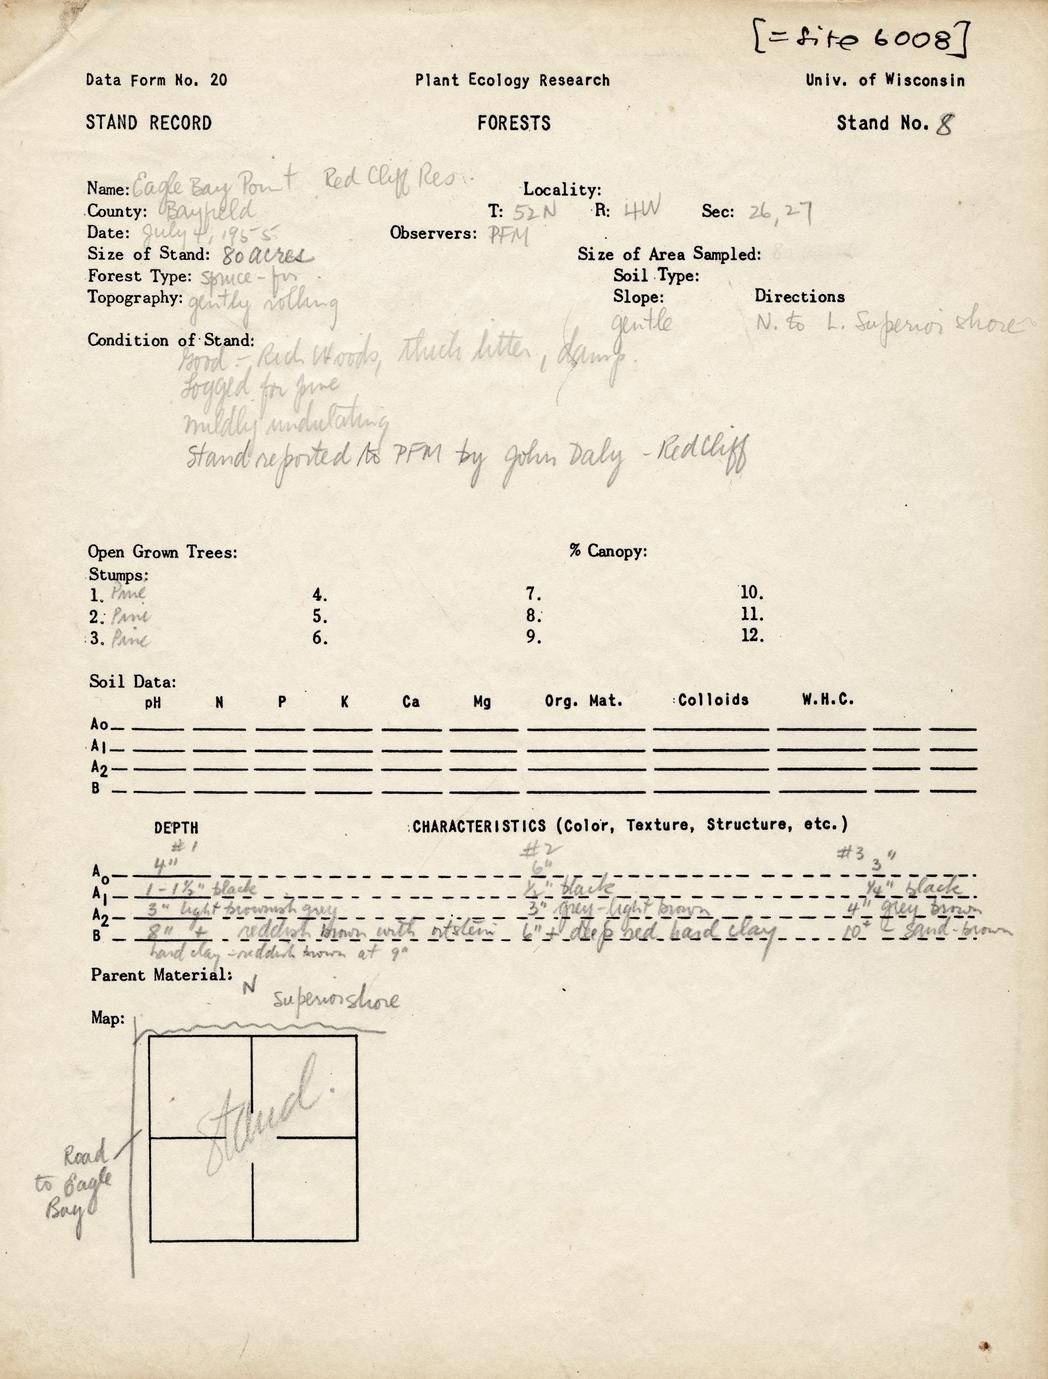 [= Site 6008]
Data Form No. 20 Plant Ecology Research Univ. of Wisconsin
STAND RECORD FORESTS Stand No. 8
Name: Eagle Bay Point Red Cliff Res. Locality:
County: Bayfield T: 52N R: 4W Sec: 26, 27
Date: July 4, 1955 Observers: PFM
Size of Stand: 80 acres Size of Area Sampled:
Forest Type: spruce-fir Soil Type:
Topography: gently rolling Slope: Directions
gentle N. to L. Superior shore
Condition of Stand:
Good - Rich Woods, thick litter, damp.
Logged for pine
mildly undulating
Stand reported to PFM by John Daly - Red Cliff
Open Grown Trees: % Canopy:
Stumps:
1. Pine 4. 7. 10.
2. Pine 5. 8. 11.
3. Pine 6. 9. 12.
Soil Data:
pH N P K Ca Mg Org. Mat. Colloids W.H.C.
Ao
A1
A2
B
DEPTH CHARACTERISTICS (Color, Texture, Structure, etc.)
#1 #2 #3
Ao 4" 6" 3"
A1 1-1½" black ½" black ¼" black
A2 3" light brownish grey 3" grey-light brown 4" grey brown
B 8" + reddish brown with ortstein 6" + deep red hard clay 10" + sand-brown
hard clay - reddish brown at 9"
Parent Material:
N
Superior shore
Map:
Stand.
Road
to Eagle
Bay